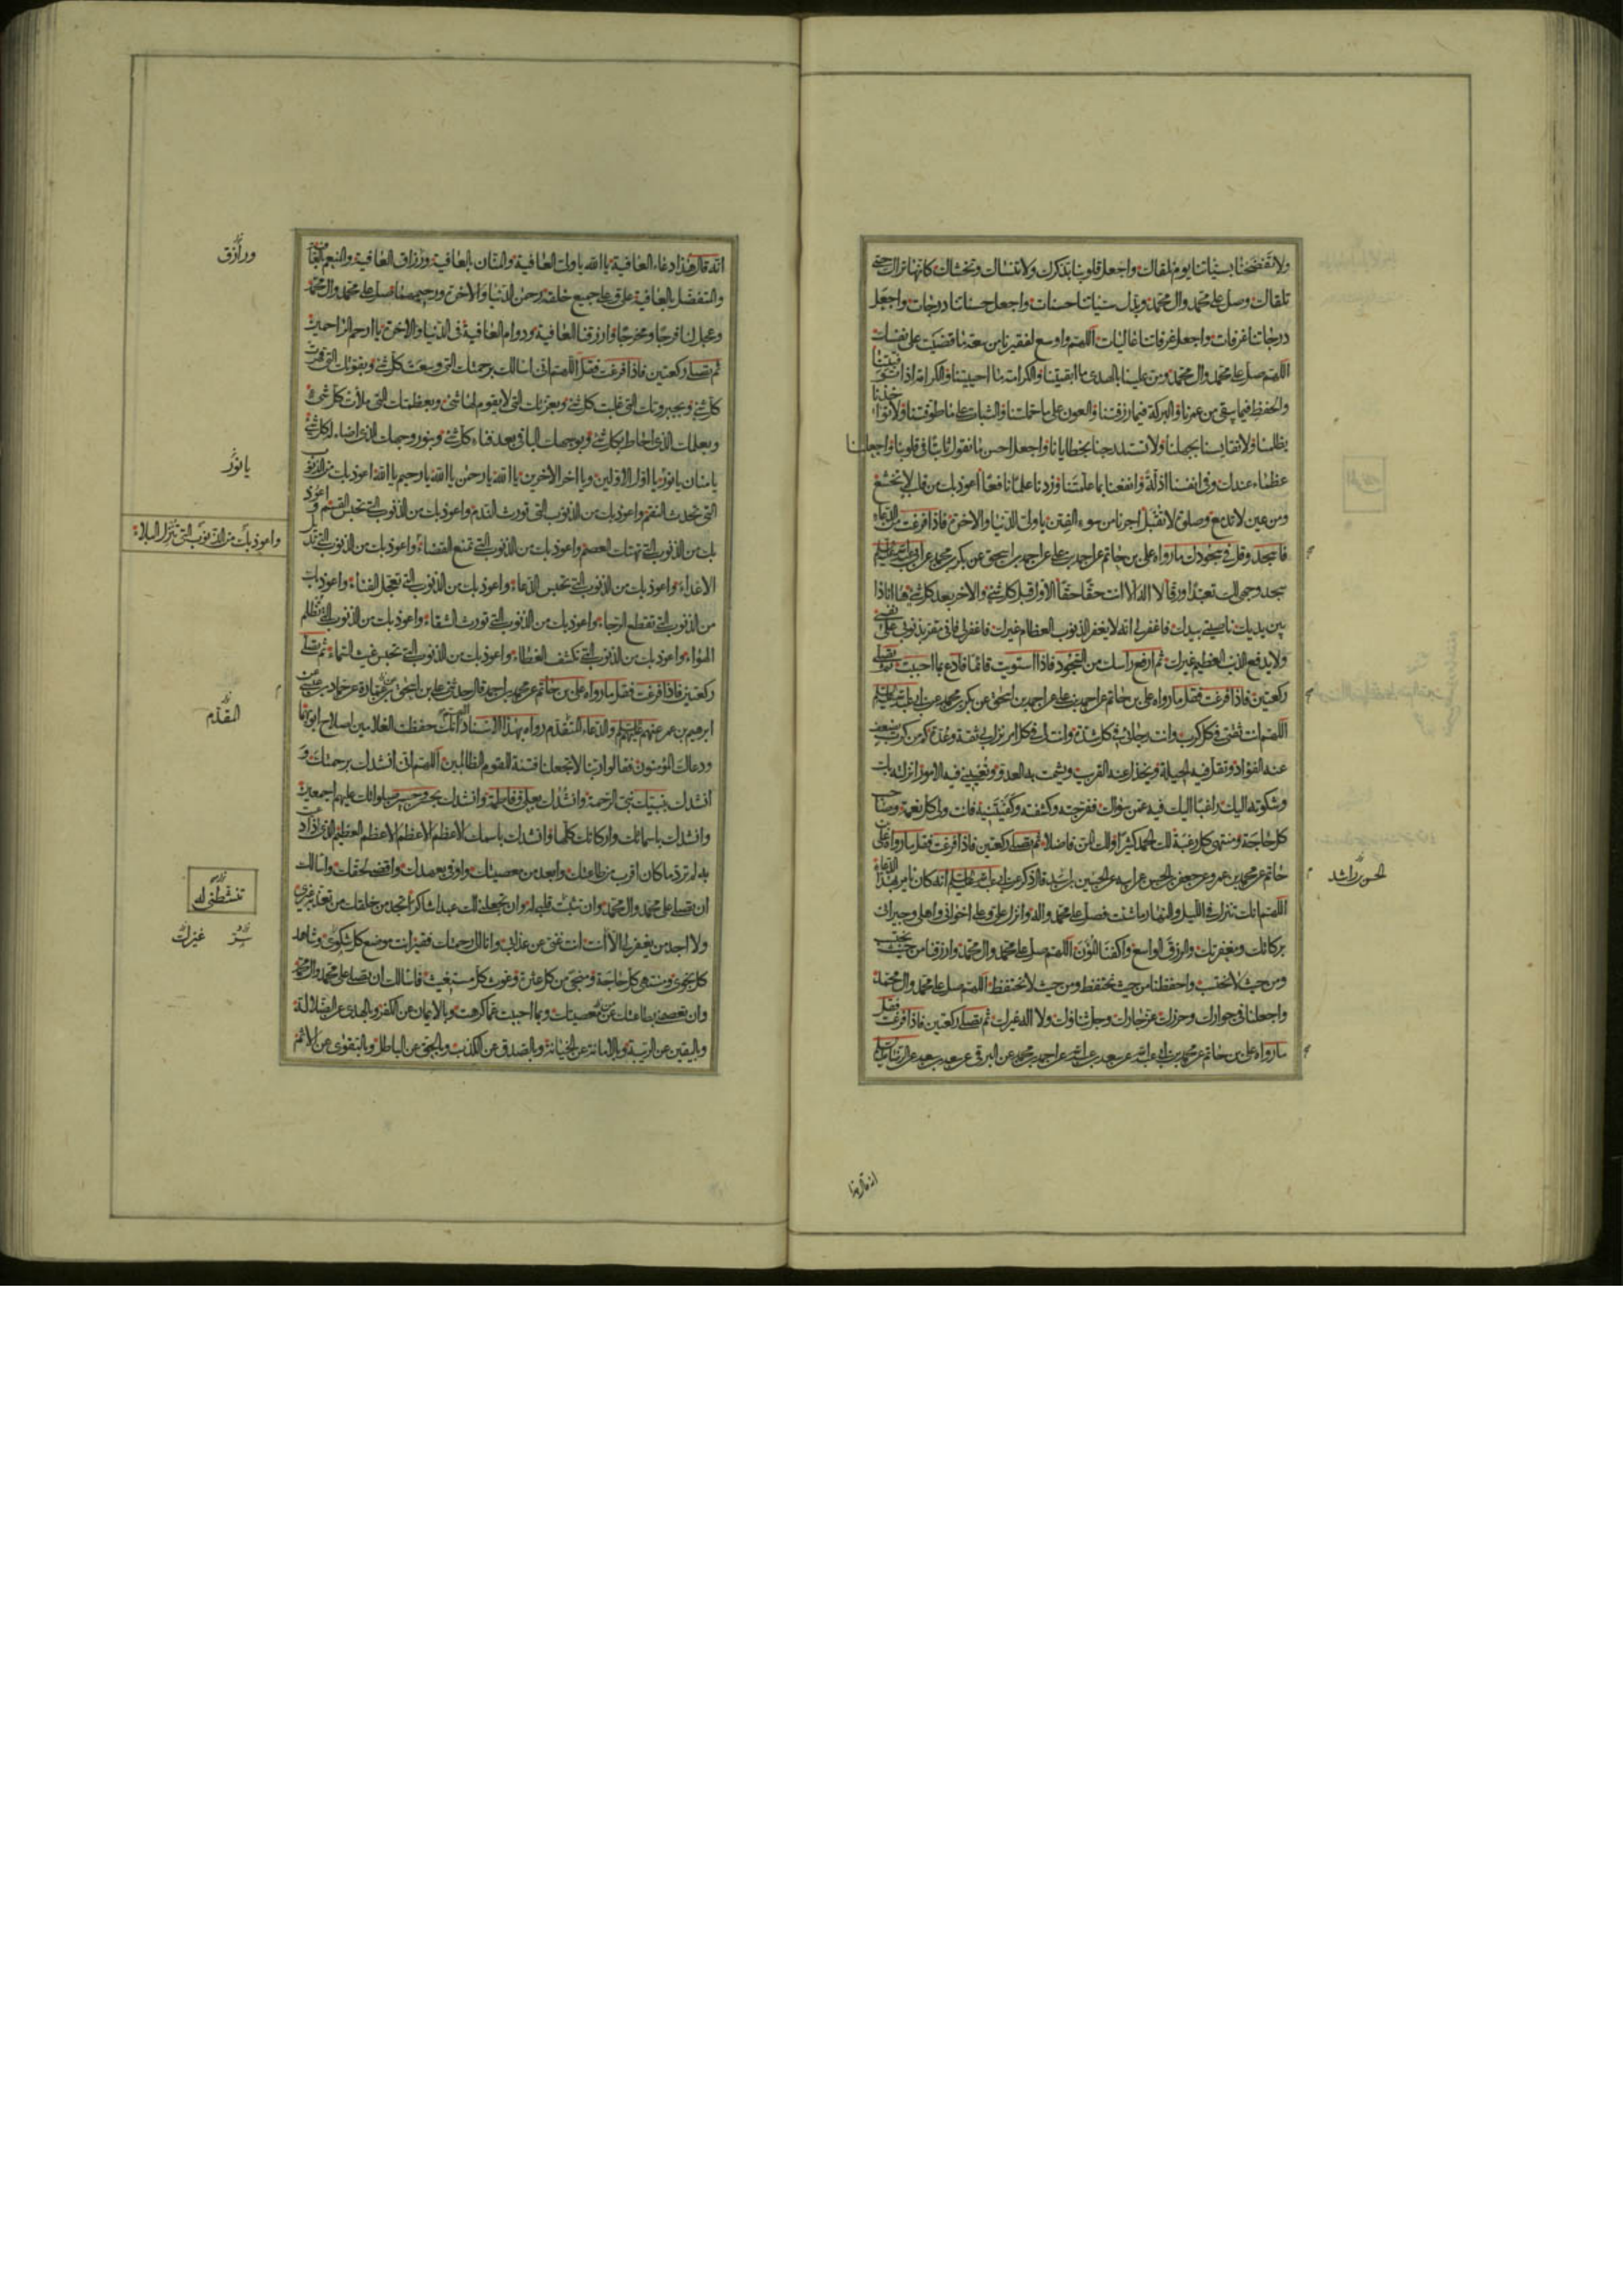 ولا تفضحنا بسيئاتنا يوم نلقاك واجعل قلوبنا بذكرك ولا تنساك وتخشاك كانها تراك حتى
تلقاك وصل على محمد وال محمد وبدل سيئاتنا حسنات واجعل حسناتنا درجات واجعل
درجاتنا غرفات واجعل غرفاتنا عاليات اللهم واوسع لفقيرنا من سعة ما قضيت على نفسك
اللهم صل على محمد وال محمد ومن علينا بالهدى ما ابقيتنا والكرامة ما احييتنا والكرامة اذا توفيتنا
والحفظ فيما بقى من عمرنا والبركة فيما رزقتنا والعون على ما حملتنا والثبات على ما طوقتنا ولا تؤاخذنا
بظلمنا ولا تقايسنا بجهلنا ولا تستدرجنا بخطايانا واجعل احسن ما نقول ثابتا فى قلوبنا واجعلنا
عظماء عندك وفى انفسنا اذلة وانفعنا بما علمتنا وزدنا علما نافعا اعوذ بك من قلب لا يخشع
ومن عين لا تدمع وصلوة لا تقبل اجرنا من سوء الفتن يا ولى الدنيا والاخرة فاذا فرغت من الدعاء
فاسجد وقل فى سجودك ما رواه على بن حاتم عن احمد بن على عن احمد بن اسحق عن بكر بن محمد عن ابى عبد الله عليه السلم
سجد وجهى لك تعبدا ورقا لا اله الا انت حقا حقا الاول قبل كل شئ والاخر بعد كل شئ ها انا ذا
بين يديك ناصيتى بيدك فاغفر لى انه لا يغفر الذنوب العظام غيرك فاغفر لى فانى مقر بذنوبى على نفسى
ولا يدفع الذنب العظيم غيرك ثم ارفع راسك من السجود فاذا استويت قائما فادع بما احببت ثم تصلى
ركعتين فاذا فرغت فقل ما رواه على بن حاتم عن احمد بن على عن احمد بن اسحق عن بكر بن محمد عن ابى عبد الله عليه السلم
اللهم انت ثقتى فى كل كرب وانت رجائى فى كل شدة وانت لى فى كل امر نزل بى ثقة وعدة كم من كرب يضعف
عنه الفؤاد وتقل فيه الحيلة ويخذل عنه القريب ويشمت به العدو وتعيينى فيه الامور انزلته بك
وشكوته اليك راغبا اليك فيه عمن سواك ففرجته وكشفته وكفيتنيه فانت ولى كل نعمة وصاحب
كل حاجة ومنتهى كل رغبة لك الحمد كثيرا ولك المن فاضلا ثم تصلى ركعتين فاذا فرغت فقل ما رواه على بن
حاتم عن محمد بن عمرو عن جعفر بن الحسين عن ابيه عن الحسين بن راشد قال ذكر عن ابى عبد الله عليه السلم انه كان يامر بهذا الدعاء
اللهم انك تنزل فى الليل والنهار ما شئت فصل على محمد واله وانزل على وعلى اخوانى واهلى وجيرانى
بركاتك ومغفرتك والرزق الواسع واكفنا المؤن اللهم صل على محمد وال محمد وارزقنا من حيث نحتسب
ومن حيث لا نحتسب واحفظنا من حيث نحتفظ ومن حيث لا نحتفظ اللهم صل على محمد وال محمد
واجعلنا فى جوارك وحرزك عز جارك وجل ثناؤك ولا اله غيرك ثم تصلى ركعتين فاذا فرغت فقل
ما رواه على بن حاتم عن محمد بن ابى عبد الله عن سعد بن عبد الله عن احمد بن محمد عن البرقى عن سعد بن سعد عن الرضا عليه السلم
الحسن راشد
انه قال هذا
انه قال هذا دعاء العافية يا الله يا ولى العافية والمنان بالعافية ورزاق العافية والمنعم بالعافية
والمتفضل بالعافية على وعلى جميع خلقه رحمن الدنيا والاخرة ورحيمهما صل على محمد وال محمد
وعجل لنا فرجا ومخرجا وارزقنا العافية ودوام العافية فى الدنيا والاخرة يا ارحم الراحمين
ثم تصلى ركعتين فاذا فرغت فقل اللهم انى اسالك برحمتك التى وسعت كل شئ وبقوتك التى قهرت
كل شئ وبجبروتك التى غلبت كل شئ وبعزتك التى لا يقوم لها شئ وبعظمتك التى ملأت كل شئ
وبعلمك الذى احاط بكل شئ وبوجهك الباقى بعد فناء كل شئ وبنور وجهك الذى اضاء له كل شئ
يا منان يا نور يا اول الاولين ويا اخر الاخرين يا الله يا رحمن يا الله يا رحيم يا الله اعوذ بك من الذنوب
التى تحدث النقم واعوذ بك من الذنوب التى تورث الندم واعوذ بك من الذنوب التى تحبس القسم واعوذ
بك من الذنوب التى تهتك العصم واعوذ بك من الذنوب التى تمنع القضاء واعوذ بك من الذنوب التى تديل
الاعداء واعوذ بك من الذنوب التى تحبس الدعاء واعوذ بك من الذنوب التى تعجل الفناء واعوذ بك
من الذنوب التى تقطع الرجاء واعوذ بك من الذنوب التى تورث الشقاء واعوذ بك من الذنوب التى تظلم
الهواء واعوذ بك من الذنوب التى تكشف الغطاء واعوذ بك من الذنوب التى تحبس غيث السماء ثم تصلى
ركعتين فاذا فرغت فقل ما رواه على بن حاتم عن محمد بن احمد قال حدثنى على بن اسحق عن حماد بن عيسى عن
ابرهيم بن عمر عنهم عليهم السلم والدعاء المتقدم رواه بهذا الاسناد اللهم انك حفظت الغلامين لصلاح ابويهما
ودعاك المؤمنون فقالوا ربنا لا تجعلنا فتنة للقوم الظالمين اللهم انى انشدك برحمتك و
انشدك بنبيك نبى الرحمة وانشدك بعلى وفاطمة وانشدك بحسن وحسين صلواتك عليهم اجمعين
وانشدك باسمائك واركانك كلها وانشدك باسمك الاعظم الاعظم الاعظم العظيم الذى اذا دعيت
به لم ترد ما كان اقرب من طاعتك وابعد من معصيتك واوفى بعهدك واقضى لحقك واسالك
ان تصلى على محمد وال محمد وان وان تجعلنى لك عبدا شاكرا تجد من خلقك من تعذبه غيرى
ولا اجد من يغفر لى الا انت انت غنى عن عذابى وانا الى رحمتك فقير انت موضع كل شكوى وشاهد
كل نجوى ومنتهى كل حاجة ومنجى من كل عثرة وغوث كل مستغيث فاسالك ان تصلى على محمد وال محمد
وان تعصمنى بطاعتك عن معصيتك وبما احببت عما كرهت وبالايمان عن الكفر وبالهدى عن الضلالة
وباليقين عن الريبة وبالامانة عن الخيانة وبالصدق عن الكذب وبالحق عن الباطل وبالتقوى عن الاثم
ورازق
يا نور
واعوذ بك من الذنوب التى تنزل البلاء
المقدم
تنشطنى له
غيرك